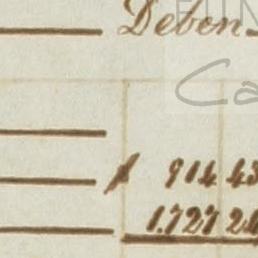 Deben
914 43
1.727 26